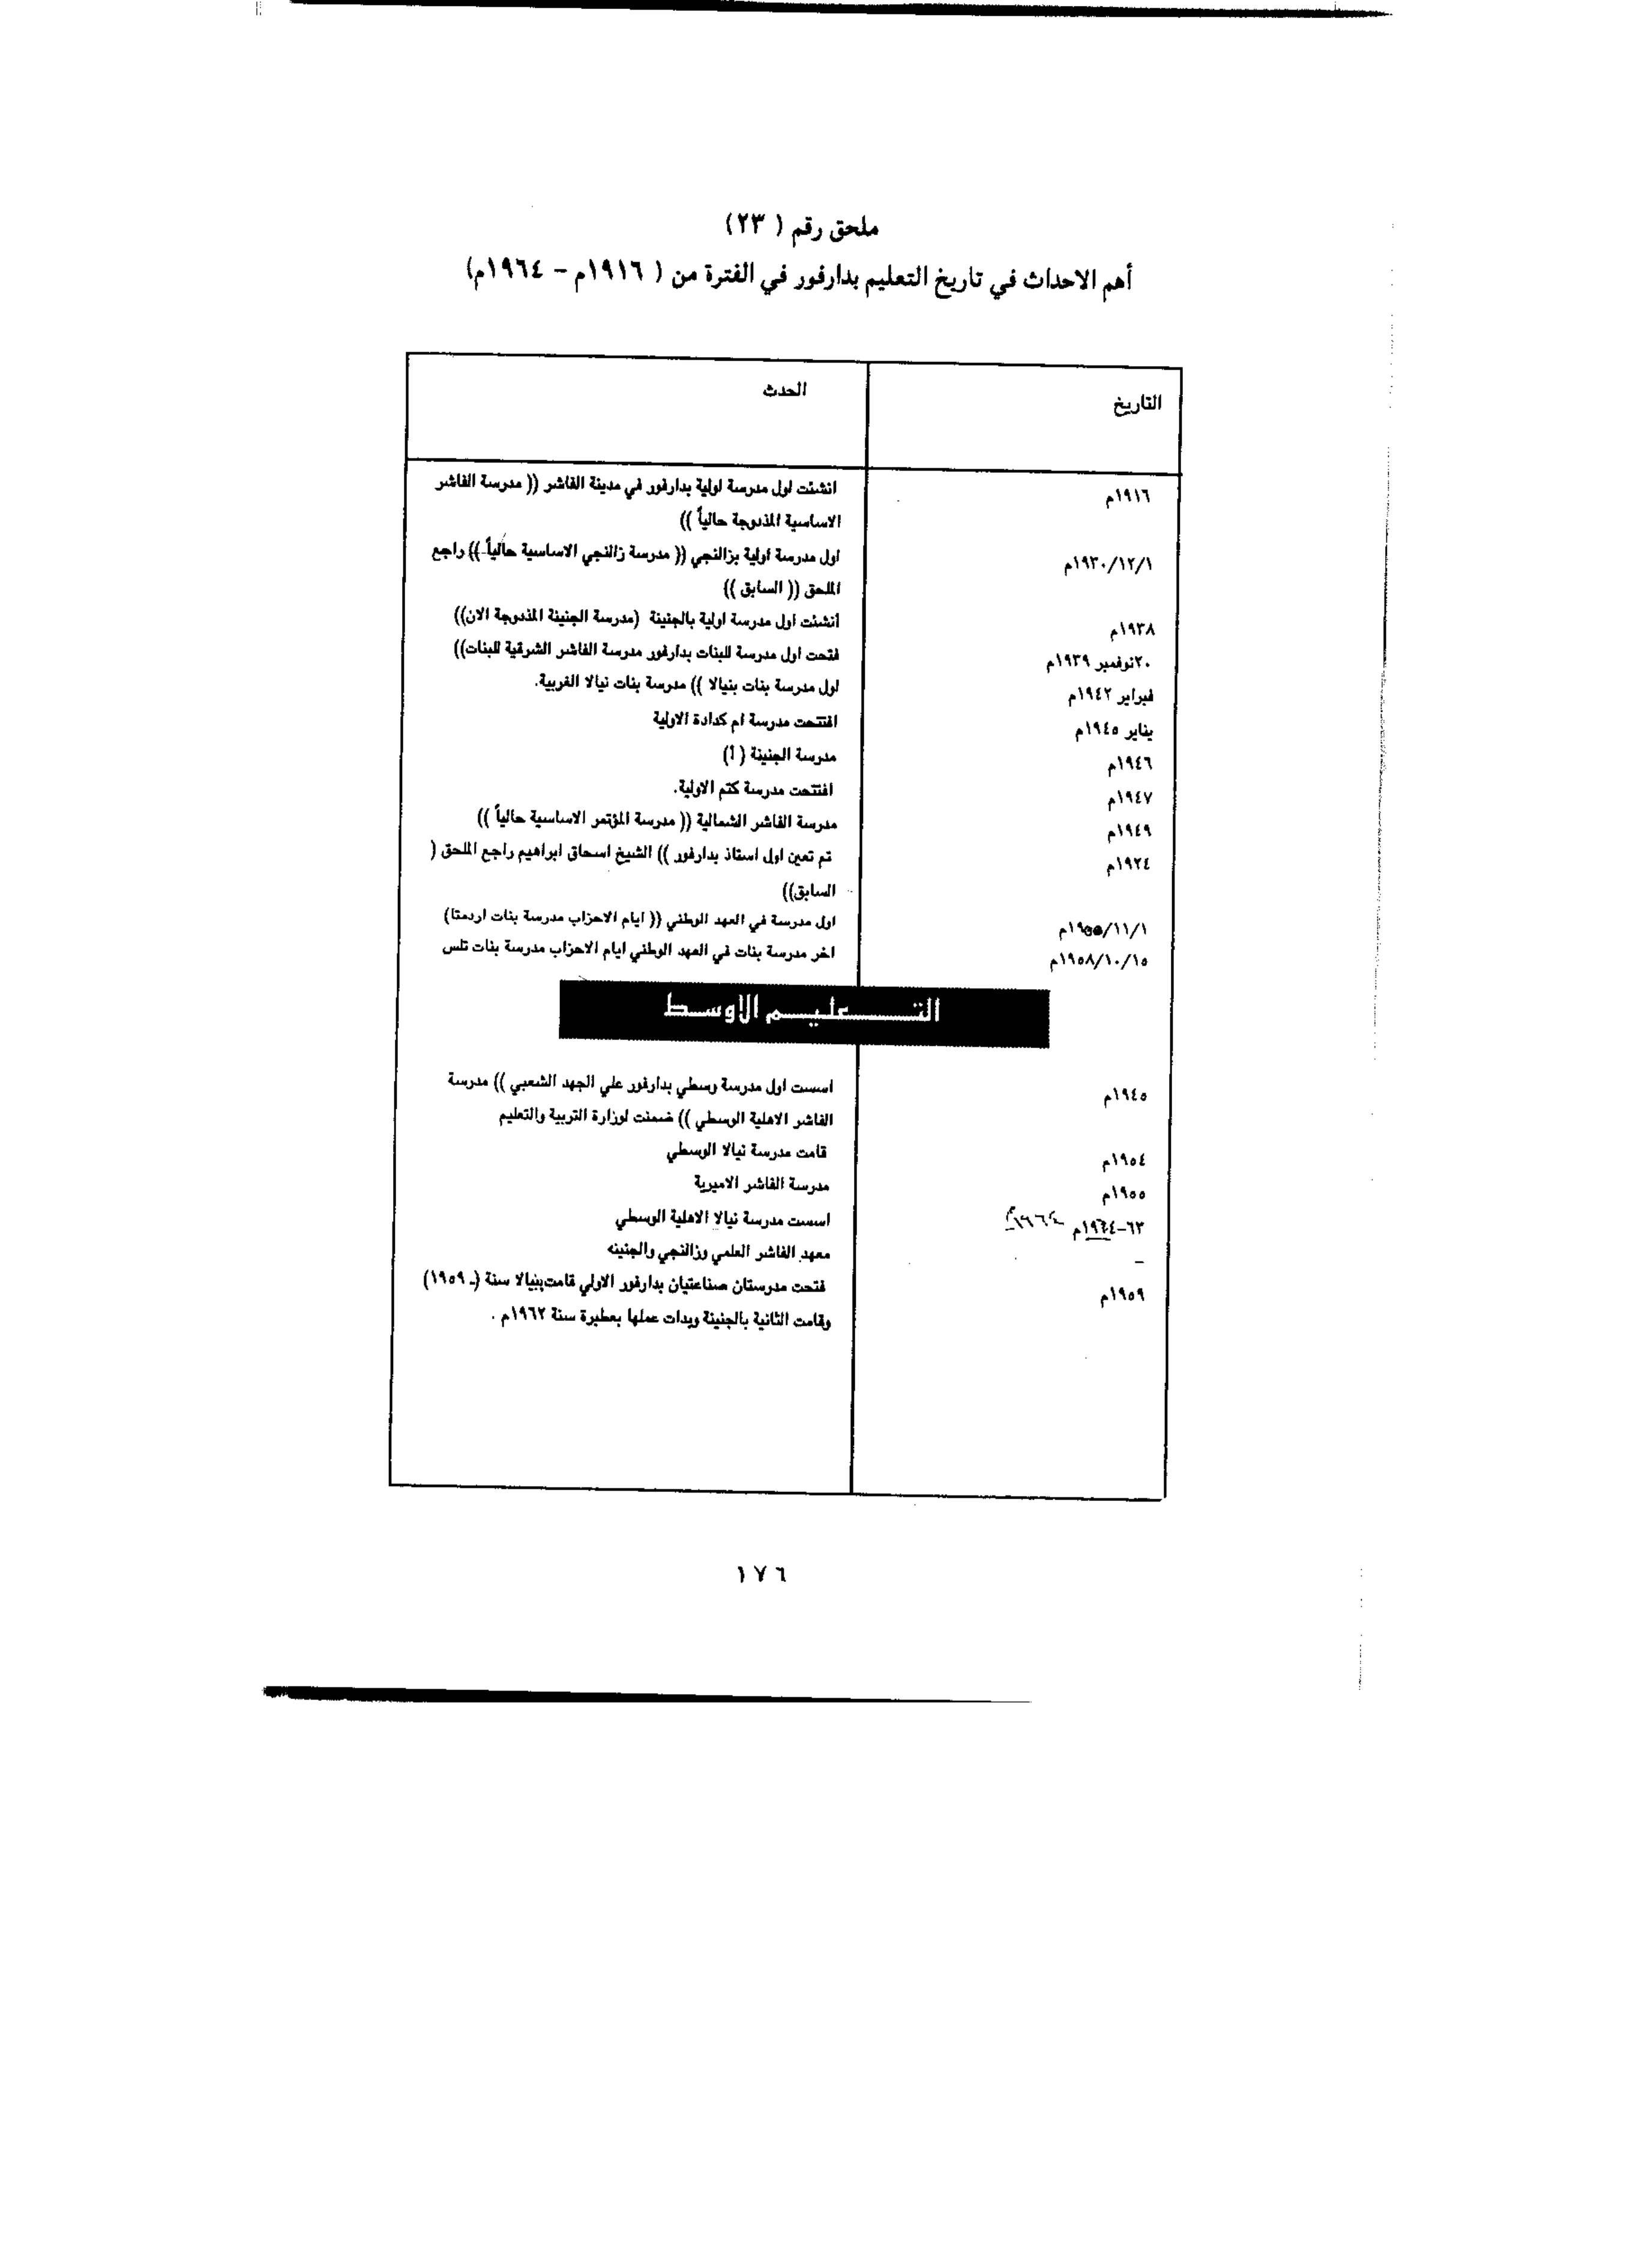 ملحق رقم ( ٢٣)
أهم الاحداث في تاريخ التعليم بدارفور في الفترة من ( ١٩١٦م – ١٩٦٤م)
التاريخ الحدث
١٩١٦م انشئت اول مدرسة اولية بدارفور في مدينة الفاشر (( مدرسة الفاشر
الاساسية المذدوجة حالياً ))
١٩٣٠/١٢/١م اول مدرسة اولية بزالنجي (( مدرسة زالنجي الاساسية حالياً)) راجع
الملحق (( السابق ))
١٩٣٨م أنشئت اول مدرسة اولية بالجنينة (مدرسة الجنينة المذدوجة الان))
٢٠نوفمبر ١٩٣٩م فتحت اول مدرسة للبنات بدارفور مدرسة الفاشر الشرقية للبنات))
فبراير ١٩٤٢م اول مدرسة بنات بنيالا )) مدرسة بنات نيالا الغربية.
يناير ١٩٤٥م افتتحت مدرسة ام كدادة الاولية
١٩٤٦م مدرسة الجنينة ( أ)
١٩٤٧م افتتحت مدرسة كتم الاولية.
١٩٤٩م مدرسة الفاشر الشمالية (( مدرسة المؤتمر الاساسية حالياً ))
١٩٢٤م تم تعين اول استاذ بدارفور )) الشيخ اسحاق ابراهيم راجع الملحق (
السابق))
١٩٥٥/١١/١م اول مدرسة في العهد الوطني (( ايام الاحزاب مدرسة بنات اردمتا)
١٩٥٨/١٠/١٥م اخر مدرسة بنات في العهد الوطني ايام الاحزاب مدرسة بنات تلس
التـــــعليــم الاوســط
١٩٤٥م اسست اول مدرسة وسطي بدارفور علي الجهد الشعبي )) مدرسة
الفاشر الاهلية الوسطي )) ضمنت لوزارة التربية والتعليم
١٩٥٤م قامت مدرسة نيالا الوسطي
١٩٥٥م مدرسة الفاشر الاميرية
٦٣–١٩٦٤م ١٩٦٤م اسست مدرسة نيالا الاهلية الوسطي
– معهد الفاشر العلمي وزالنجي والجنينه
١٩٥٩م فتحت مدرستان صناعتيان بدارفور الاولي قامت بنيالا سنة (ـ ١٩٥٩)
وقامت الثانية بالجنينة وبدات عملها بعطبرة سنة ١٩٦٢م .
١٧٦